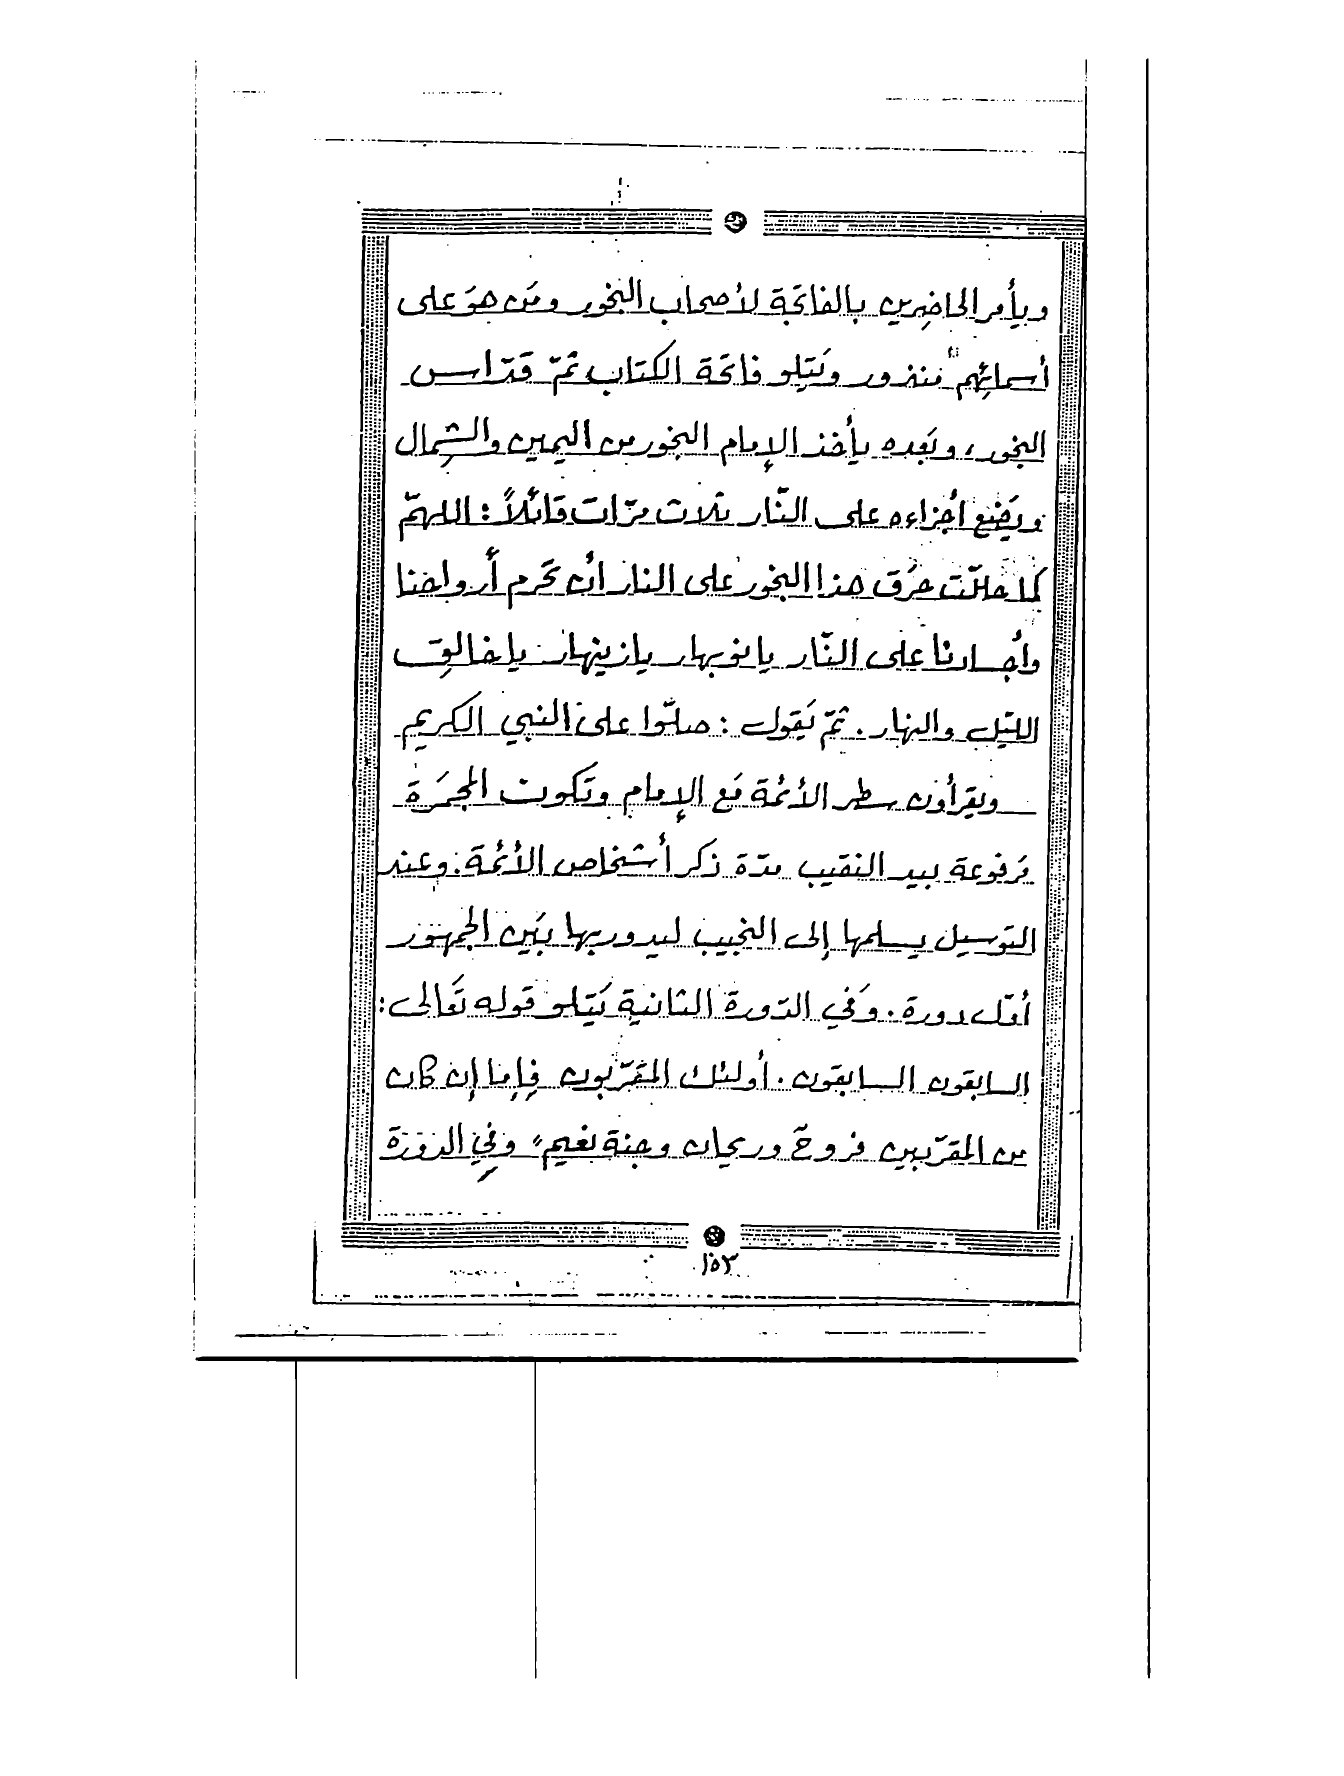 ويأمر الحاضرين بالفاتحة لأصحاب البخور ومَن هوَ على
أسمائِهم منذور ويَتلو فاتحة الكتاب ثمّ قدّاس
البخور، وبَعده يأخذ الإمام البخور من اليمين والشِمال
ويَضع أجزاءه على النّار ثلاث مرّات قائلاً : اللهمّ
كما حللّت حَرُق هذا البخور على النار أن تحَرم أرواحنا
وأجسادنا على النّار يا نوبهار يا زينهار يا خالِق
الليّل والنهار . ثمّ يَقول : صلّوا على النبي الكريم
ويقرأون سطر الأئمة مَع الإمام وتكون المجمَرة
مَرفوعة بيد النقيب مدّة ذكر أشخاص الأئمة . وعند
التوسيل يسلمها إلى النجيب ليدور بها بيَن الجمهور
أوّل دورة . وَفي الدّورة الثانية يَتلو قوله تَعالى :
السابقون السابقون . أولئك المقرّبون فإما إن كان
من المقرّبين فروحٌ وريحان وجنة نعيم ״ وَفي الدورة
١٥٣